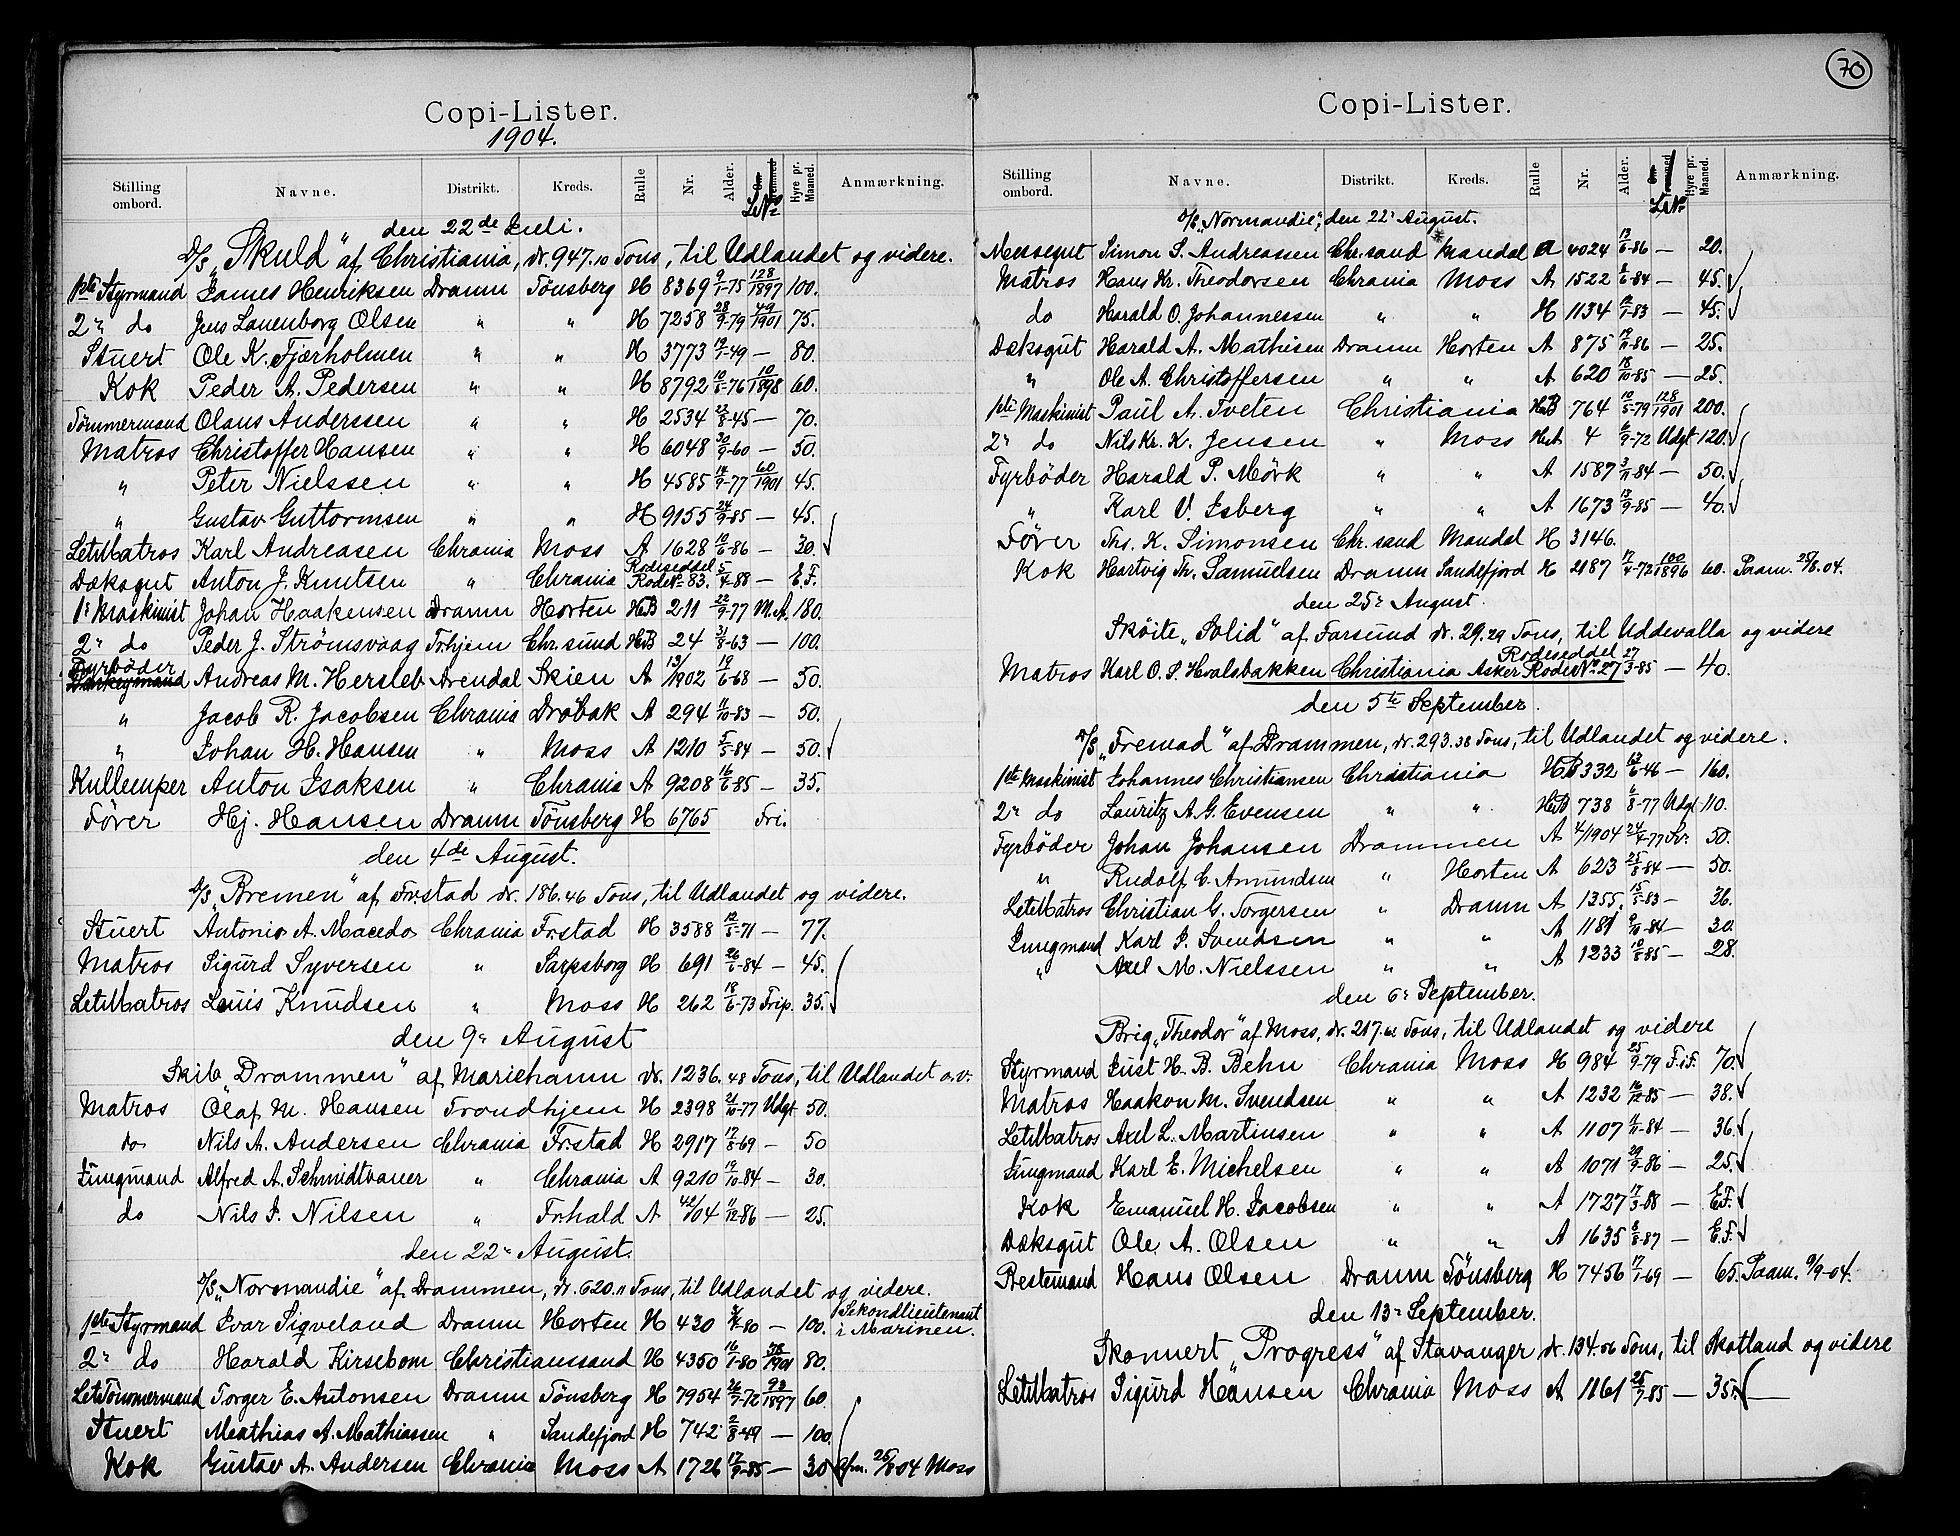 Copi-Lister.
1904.
Stilling ombord. Navne. Distrikt. Kreds. Rulle Nr. Alder. Hyre pr. Maaned. Anmærkning.
den 22de Juli.
D/S „Skuld" af Christiania, dr. 947.10 Tons, til Udlandet og videre.
1ste Styrmand James Henriksen Dramn Tönsberg H 8369 9/1-75 128/1897 100.
2n do Jens Lauenborg Olsen " " H 7258 28/9-79 49/1901 75.
Stuert Ole K. Fjærholmen " " H 3773 -49 — 80.
Kok Peder A. Pedersen " " H 8792 -76 10/1898 60.
Tömmermand Olaus Anderssen " " H 2534 -45 — 70.
Matros Christoffer Hansen " " H 6048 30/9-60 — 50.
" Peter Nielssen " " H 4585 -77 60/1901 45.
" Gustav Guttormsen " " H 9155 -85 — 45.
LetMatros Karl Andreasen Chrania Moss A 1628 -86 — 30.
Dæksgut Anton J. Knutsen " Chrania Rodeseddel Rode No 83. 5/4-88 — E.F.
1n Maskinist Johan Haakensen Dramn Horten HB 211 22/9-77 M.A. 180.
2n do Peder J. Strømsvaag Trhjem Chr.sund HB 24 31/8-63 — 100.
Fyrböder Andreas M. Hersleb Arendal Skien A 13/1902 19/6-68 — 50.
" Jacob R. Jacobsen Chrania Dröbak A 294 11/10-83 — 50.
" Johan H. Hansen " Moss A 1210 5/5-84 — 50.
Kullemper Anton Isaksen " Chrania A 9208 16/6-85 — 35.
Föver Hj. Hansen Dramn Tönsberg H 6765 Fri.
den 4de August.
D/S „Bremen" af Fr.stad dr. 186.46 Tons, til Udlandet og videre.
Stuert Antonio A. Macedo Chrania Frstad H 3588 -71 — 77.
Matros Sigurd Syversen " Sarpsborg H 691 -84 — 45.
LetMatros Louis Knudsen " Moss H 262 18/6-73 Frip. 35.
den 9n August
Skib „Drammen" af Mariehamn dr. 1236.48 Tons, til Udlandet o.v.
Matros Olaf M. Hansen Trondhjem H 2398 21/10-77 Udgt 50.
do Nils A. Andersen Chrania Fr.stad H 2917 17/8-69 — 50
Jungmand Alfred A. Schmidtbauer " Chrania A 9210 19/10-84 — 30.
do Nils J. Nilsen " Frhald A 42/04 11/12-86 — 25.
den 22n August.
D/S „Normandie" af Drammen, dr. 620.11 Tons, til Udlandet og videre.
1ste Styrmand Ivar Sigveland Dramn Horten H 430 -80 — 100. Sekondlieutenant i Marinen.
2n do Harald Kirsebom Christianssand H 4350 16/1-80 /1901 80.
LetTömmermand Torger E. Antonsen Dramn Tönsberg H 7954 26/7-72 93/1897 60.
Stuert Mathias A. Mathiassen " Sandefjord H 742 2/8-49 — 100.
Kok Gustav A. Andersen Chrania Moss A 1726 17/9-85 — 30 04 Moss
70
Copi-Lister.
Stilling ombord. Navne. Distrikt. Kreds. Rulle Nr. Alder. Hyre pr. Maaned. Anmærkning.
D/S „Normandie", den 22n August.
Messegut Simon S. Andreassen Chr.sand Mandal a 4024 -86 — 20.
Matros Hans Kr. Theodorsen Chrania Moss A 1522 -84 — 45.
do Harald O. Johannessen " " H 1134 -83 — 45.
Dæksgut Harald A. Mathisen Dramn Horten A 875 -86 — 25.
" Ole A. Christoffersen " " A 620 18/10-85 — 25.
1ste Maskinist Paul A. Tveten Christiania HB 764 10/5-79 128/1901 200.
2n do Nils Kr. K. Jensen " Moss 4 6/9-72 Udgt 120.
Fyrböder Harald P. Mörk " " A 1587 3/11-84 — 50.
" Karl V. Esberg " " A 1673 13/9-85 — 40.
Föver Ths. K. Simonsen Chr.sand Mandal H 3146.
Kok Hartvig Th. Samuelsen Dramn Sandefjord H 2187 17/4-72 100/1896 60. Paam. 25/8.04.
den 25n August.
Skøite „Solid" af Farsund dr. 29.29 Tons, til Uddevalla og videre
Matros Karl O. S. Hvalsbakken Christiania Asker Rodeseddel Rode No 27 27/3-85 — 40.
den 5te September.
D/S „Fremad" af Drammen, dr. 293.38 Tons, til Udlandet og videre.
1ste Maskinist Johannes Christiansen Christiania HB 332 -46 — 160.
2n do Lauritz A. G. Evensen " " HB 738 6/8-77 Udgt 110.
Fyrböder Johan Johansen Drammen A 4/1904 24/4-77 50.
" Rudolf C. Amundsen " Horten A 623 25/8-84 — 50.
LetMatros Christian G. Torgersen " Dramn A 1355. 15/5-83 — 36.
Jungmand Karl J. Svendsen " " A 1181 9/10-84 — 30.
" Axel M. Nielssen " " A 1233 10/8-85 — 28.
den 6n September.
Brig „Theodor" af Moss, dr. 217.61 Tons, til Udlandet og videre
Styrmand Just H. B. Behn Chrania Moss H 984 25/9-79 F.i.F. 70.
Matros Haakon M. Svendsen " " A 1232 16/12-85 — 38.
LetMatros Axel L. Martinsen " " A 1107 -84 — 36.
Jungmand Karl E. Michelsen " " A 1071 29/9-86 — 25.
Kok Emanuel H. Jacobsen " " A 1727 17/3-88 — E.F.
Dæksgut Ole A. Olsen " " A 1635 -87 — E.F.
Bestemand Hans Olsen Dramn Tönsberg H 7456 17/1-69 — 65. Paam. 9/9-04.
den 13n September.
Skonnert „Progress" af Stavanger dr. 134.06 Tons, til Skotland og videre
LetMatros Sigurd Hansen Chrania Moss A 1861 25/7-85 — 35.